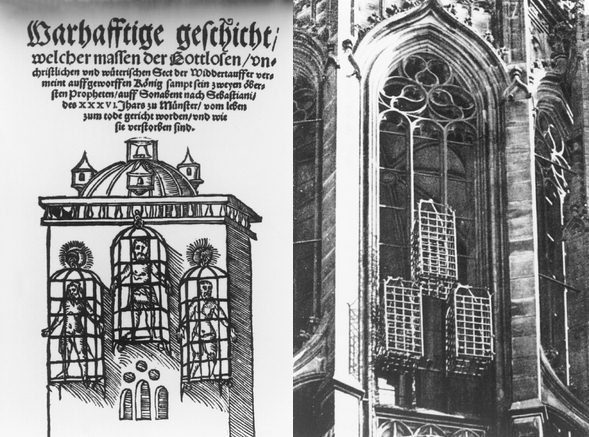 Warhafftige geschicht/
welcher massen der Gottlosen/vn-
christlichen vnd wüterischen Sect der Widdertauffer ver-
meint auffgeworffen König sampt sein zweyen öber-
sten Propheten/auff Sonabent nach Sebastiani/
des XXXVI. Jhars zu Münster/vom leben
zum tode gericht worden/vnd wie
sie verstorben sind.